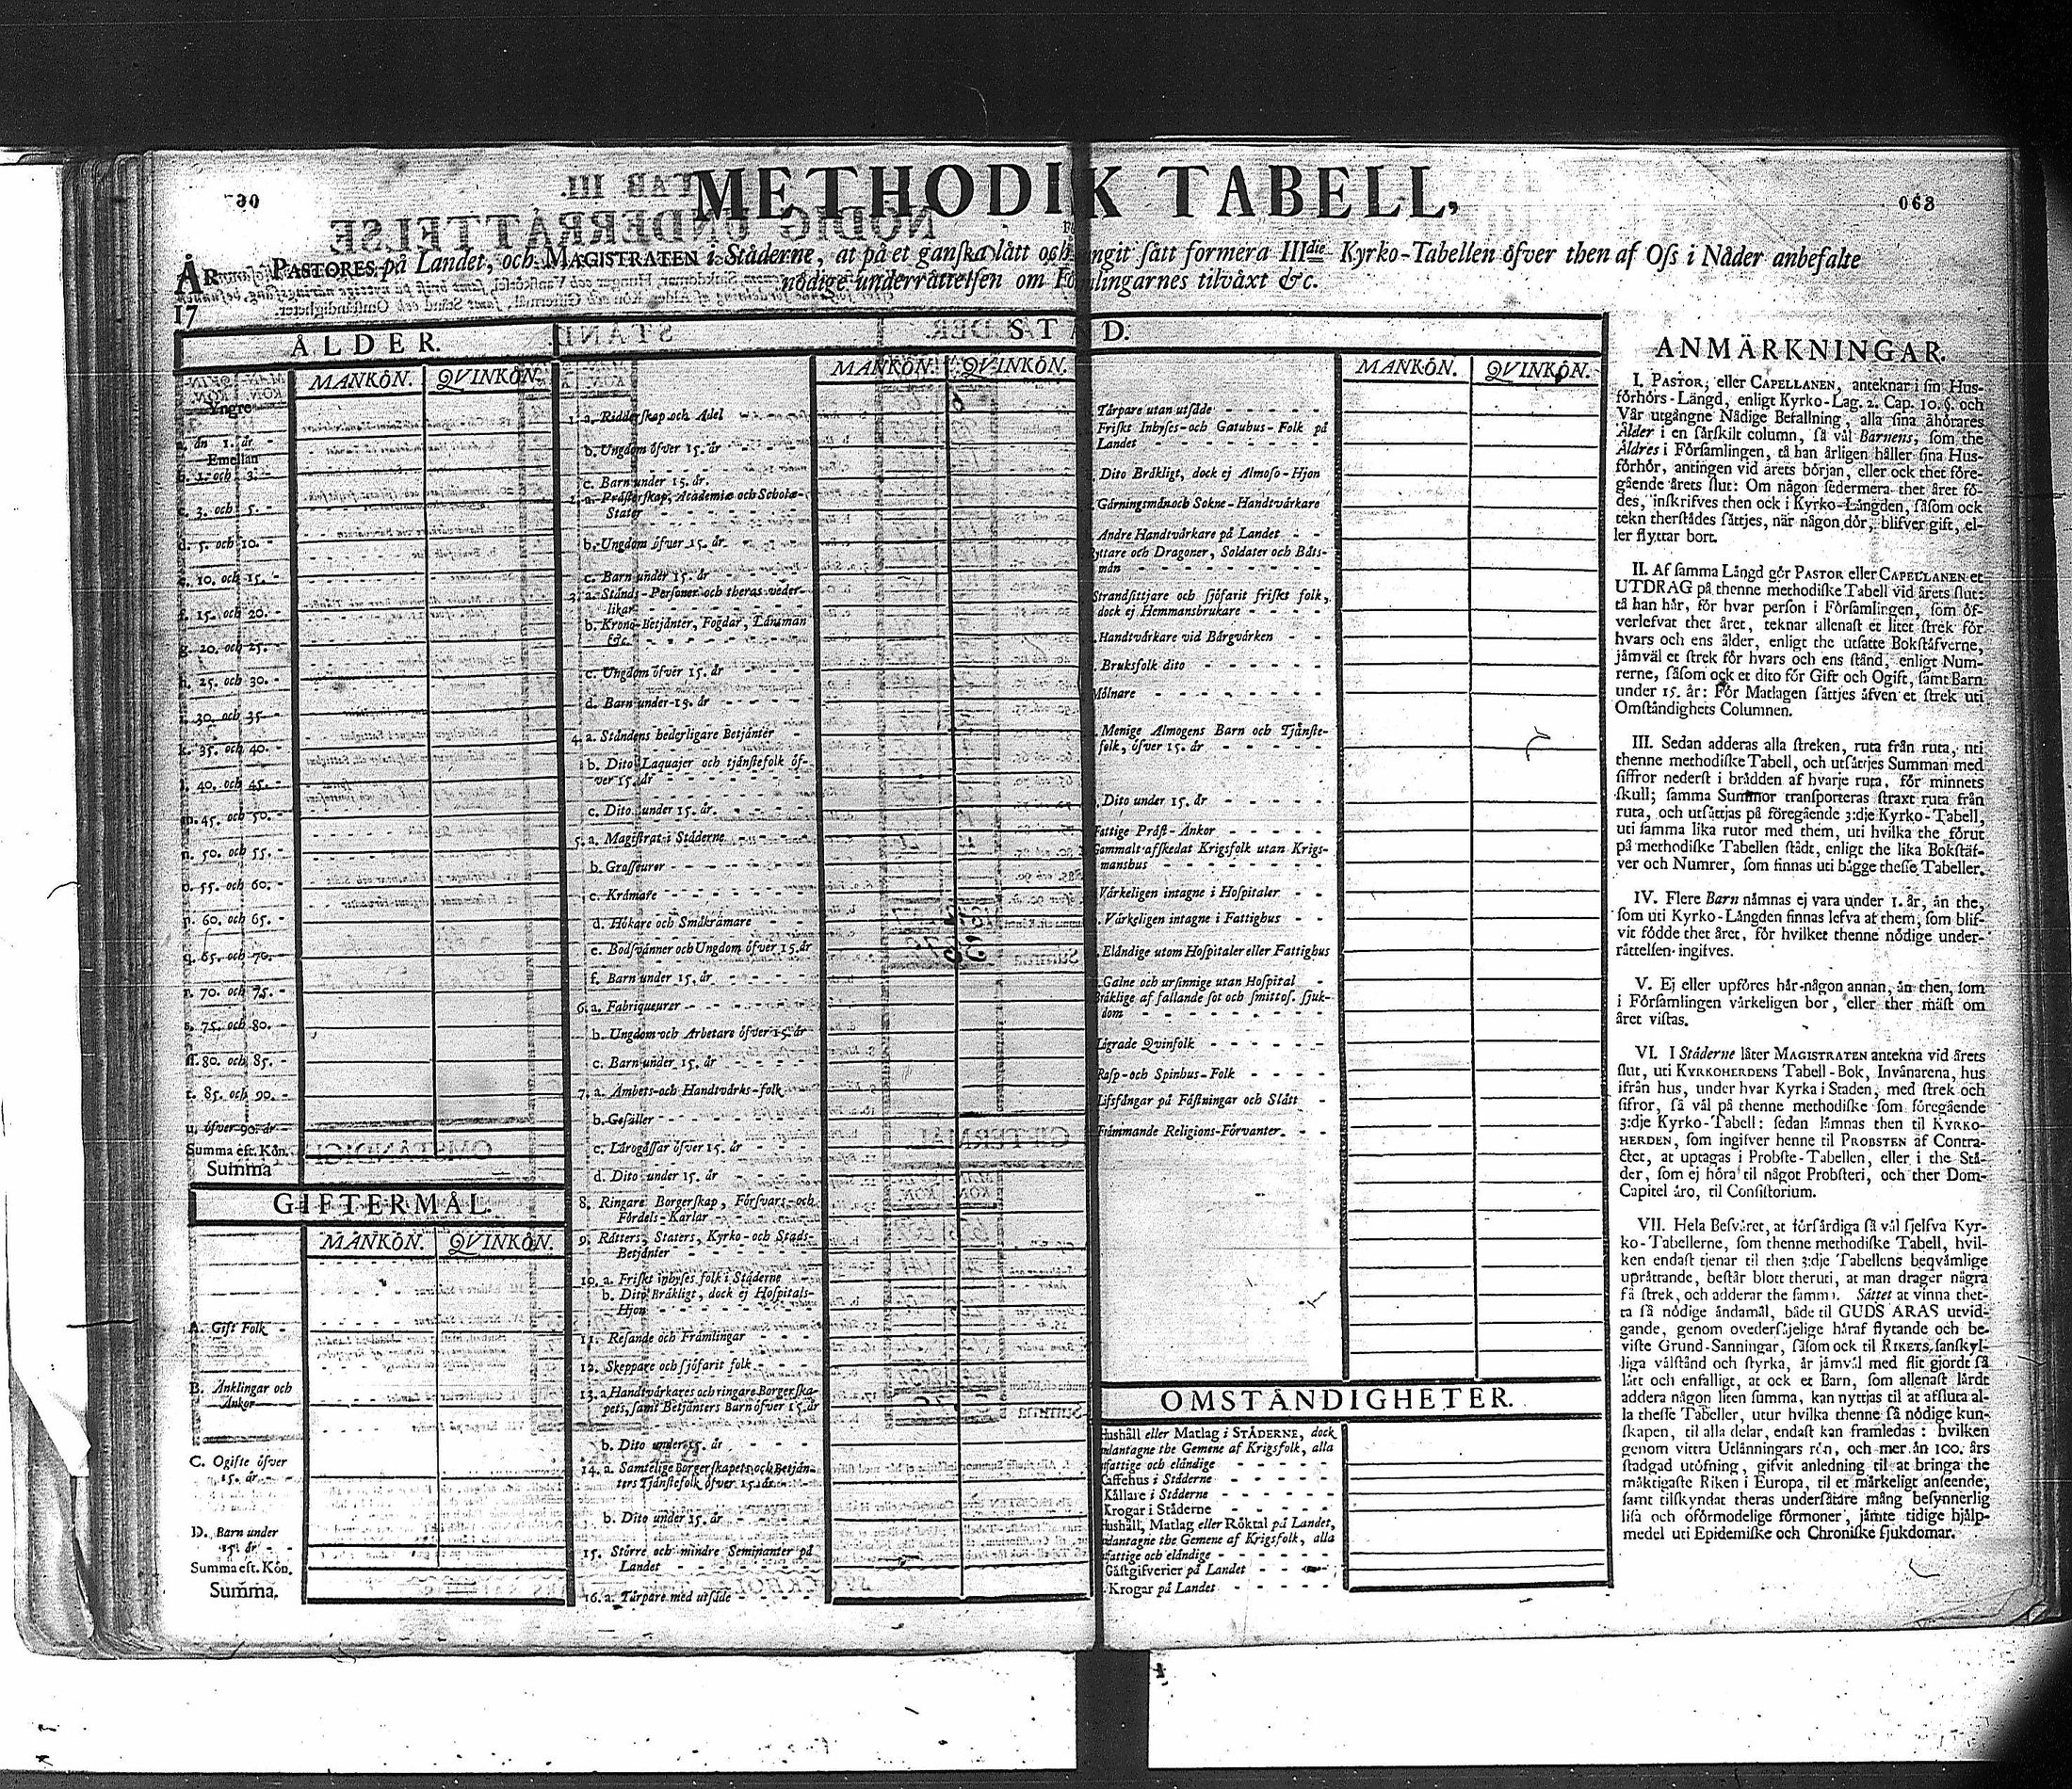 METHODIK TABELL,
063
ÅR PASTORES på Landet, och MAGISTRATEN i Ståderne, at på et ganſka lått och ringit ſått formera IIIdie Kyrko-Tabellen ôfver then af Oſs i Nåder anbefalte
17
nôdige underråttelſen om Fôrſamlingarnes tilvåxt &c.
ÅLDER.
MANKÔN. QVINKÔN.
Yngre
a. ån 1. år
Emellan
b. 1. och 3.
c. 3. och 5.
d. 5. och 10.
e. 10. och 15.
f. 15. och 20.
g. 20. och 25.
h. 25. och 30.
i. 30. och 35.
k. 35. och 40.
l. 40. och 45.
m. 45. och 50.
n. 50. och 55.
o. 55. och 60.
p. 60. och 65.
q. 65. och 70.
r. 70. och 75.
s. 75. och 80.
ſſ. 80. och 85.
t. 85. och 90.
u. ôfver 90. år
Summa eft. Kôn.
Summa
GIFTERMÅL.
MANKÔN. QVINKÔN.
A. Gift Folk
B. Ånklingar och
Ånkor
C. Ogifte ôfver
15. år
D. Barn under
15. år
Summa eft. Kôn.
Summa.
STÅND.
MANKÔN. QVINKÔN.
1. a. Ridderſkap och Adel
b. Ungdom ôfver 15. år
c. Barn under 15. år.
2. a. Pråſterſkap, Academiæ och Scholæ-
Stater
b. Ungdom ôfver 15. år
c. Barn under 15. år
3. a. Stånds-Perſoner och theras veder-
likar
b. Krono-Betjånter, Fogdar, Lånsmån
&c.
c. Ungdom ôfver 15. år
d. Barn under 15. år
4. a. Ståndens hederligare Betjånter
b. Dito Laquajer och tjånſtefolk ôf-
ver 15. år
c. Dito under 15. år
5. a. Magiſtrat i Ståderne
b. Groſſeurer
c. Kråmare
d. Hôkare och Småkråmare
e. Bodſvånner och Ungdom ôfver 15. år
f. Barn under 15. år
6. a. Fabriqueurer
b. Ungdom och Arbetare ôfver 15. år
c. Barn under 15. år
7. a. Åmbets-och Handtvårks-folk
b. Geſåller
c. Lårogåſſar ôfver 15. år
d. Dito under 15. år
8. Ringare Borgerſkap, Fôrſvars-och
Fôrdels-Karlar
9. Råtters, Staters, Kyrko-och Stads-
Betjånter
10. a. Friſkt inhyſes folk i Ståderne
b. Dito Bråkligt, dock ej Hoſpitals-
Hjon
11. Reſande och Fråmlingar
12. Skeppare och ſjôfarit folk
13. a. Handtvårkares och ringare Borgerſka-
pets, ſamt Betjånters Barn ôfver 15. år
b. Dito under 15. år
14. a. Samtelige Borgerſkapets och Betjån-
ters Tjånſtefolk ôfver 15. år
b. Dito under 15. år
15. Stôrre och mindre Seminanter på
Landet
16. a. Tårpare med utſåde
MANKÔN. QVINKÔN.
Tårpare utan utſåde
Friſkt Inhyſes-och Gatuhus-Folk på
Landet
Dito Bråkligt, dock ej Almoſo-Hjon
Gårningsmån och Sokne-Handtvårkare
Andre Handtvårkare på Landet
yttare och Dragoner, Soldater och Båts-
mån
Strandſittjare och ſjôfarit friſkt folk,
dock ej Hemmansbrukare
Handtvårkare vid Bårgvårken
Bruksfolk dito
Môlnare
Menige Almogens Barn och Tjånſte-
folk, ôfver 15. år
Dito under 15. år
Fattige Pråſt-Ånkor
Gammalt afſkedat Krigsfolk utan Krigs-
manshus
Vårkeligen intagne i Hoſpitaler
Vårkeligen intagne i Fattighus
Elåndige utom Hoſpitaler eller Fattighus
Galne och urſinnige utan Hoſpital
Bråklige af fallande ſot och ſmittoſ. ſjuk-
dom
Lågrade Qvinfolk
Raſp-och Spinhus-Folk
Lifsfångar på Fåſtningar och Slått
Fråmmande Religions-Fôrvanter
OMSTÅNDIGHETER.
Hushåll eller Matlag i STÅDERNE, dock
undantagne the Gemene af Krigsfolk, alla
fattige och elåndige
Caffehus i Ståderne
Kållare i Ståderne
Krogar i Ståderne
Hushåll, Matlag eller Rôktal på Landet,
undantagne the Gemene af Krigsfolk, alla
fattige och elåndige
Gåſtgifverier på Landet
Krogar på Landet
ANMÄRKNINGAR.
I. PASTOR, eller CAPELLANEN, anteknar i ſin Hus-
fôrhôrs-Långd, enligt Kyrko-Lag. 2. Cap. 10. §. och
Vår utgångne Nådige Befallning, alla ſina åhôrares
Ålder i en ſårſkilt column, ſå vål Barnens, ſom the
Åldres i Fôrſamlingen, tå han årligen håller ſina Hus-
fôrhôr, antingen vid årets bôrjan, eller ock thet fôre-
gående årets ſlut: Om någon ſedermera thet året fô-
des, inſkrifves then ock i Kyrko-Långden, ſåſom ock
tekn therſtådes ſåttjes, når någon dôr, blifver gift, el-
ler flyttar bort.
II. Af ſamma Långd gôr PASTOR eller CAPELLANEN et
UTDRAG på thenne methodiſke Tabell vid årets ſlut:
tå han hår, fôr hvar perſon i Fôrſamlingen, ſom ôf-
verlefvat thet året, teknar allenaſt et litet ſtrek fôr
hvars och ens ålder, enligt the utſatte Bokſtåfverne,
jåmvål et ſtrek fôr hvars och ens ſtånd, enligt Num-
rerne, ſåſom ock et dito fôr Gift och Ogift, ſamt Barn
under 15. år: Fôr Matlagen ſåttjes åfven et ſtrek uti
Omſtåndighets Columnen.
III. Sedan adderas alla ſtreken, ruta från ruta, uti
thenne methodiſke Tabell, och utſåttjes Summan med
ſiffror nederſt i brådden af hvarje ruta, fôr minnets
ſkull; ſamma Summor transporteras ſtraxt ruta från
ruta, och utſåttjas på fôregående 3:dje Kyrko-Tabell,
uti ſamma lika rutor med them, uti hvilka the fôrut
på methodiſke Tabellen ſtådt, enligt the lika Bokſtåf-
ver och Numrer, ſom finnas uti bågge theſſe Tabeller.
IV. Flere Barn nåmnas ej vara under 1. år, ån the,
ſom uti Kyrko-Långden finnas lefva af them, ſom blif-
vit fôdde thet året, fôr hvilket thenne nôdige under-
råttelſen ingifves.
V. Ej eller upfôres hår någon annan, ån then, ſom
i Fôrſamlingen vårkeligen bor, eller ther måſt om
året viſtas.
VI. I Ståderne låter MAGISTRATEN antekna vid årets
ſlut, uti KYRKOHERDENS Tabell-Bok, Invånarena, hus
ifrån hus, under hvar Kyrka i Staden, med ſtrek och
ſifror, ſå vål på thenne methodiſke ſom fôregående
3:dje Kyrko-Tabell: ſedan låmnas then til KYRKO-
HERDEN, ſom ingifver henne til PROBSTEN af Contra-
ctet, at uptagas i Probſte-Tabellen, eller i the Stå-
der, ſom ej hôra til något Probſteri, och ther Dom-
Capitel åro, til Conſiſtorium.
VII. Hela Beſvåret, at fôrfårdiga ſå vål ſjelfva Kyr-
ko-Tabellerne, ſom thenne methodiſke Tabell, hvil-
ken endaſt tjenar til then 3:dje Tabellens beqvåmlige
upråttande, beſtår blott theruti, at man drager några
få ſtrek, och adderar the ſamma. Såttet at vinna thet-
ta ſå nôdige åndamål, både til GUDS ÅRAS utvid-
gande, genom ovederſåjelige håraf flytande och be-
viſte Grund-Sanningar, ſåſom ock til RIKETS ſanſkyl-
liga vålſtånd och ſtyrka, år jåmvål med flit gjordt ſå
lått och enfalligt, at ock et Barn, ſom allenaſt lårdt
addera någon liten ſumma, kan nyttjas til at afſluta al-
la theſſe Tabeller, utur hvilka thenne ſå nôdige kun-
ſkapen, til alla delar, endaſt kan framledas: hvilken
genom vittra Utlånningars rôn, och mer ån 100. års
ſtadgad utôfning, gifvit anledning til at bringa the
måktigaſte Riken i Europa, til et mårkeligt anſeende,
ſamt tilſkyndat theras underſåtare mång beſynnerlig
liſa och ofôrmodelige fôrmoner, jåmte tidige hjålp-
medel uti Epidemiſke och Chroniſke ſjukdomar.